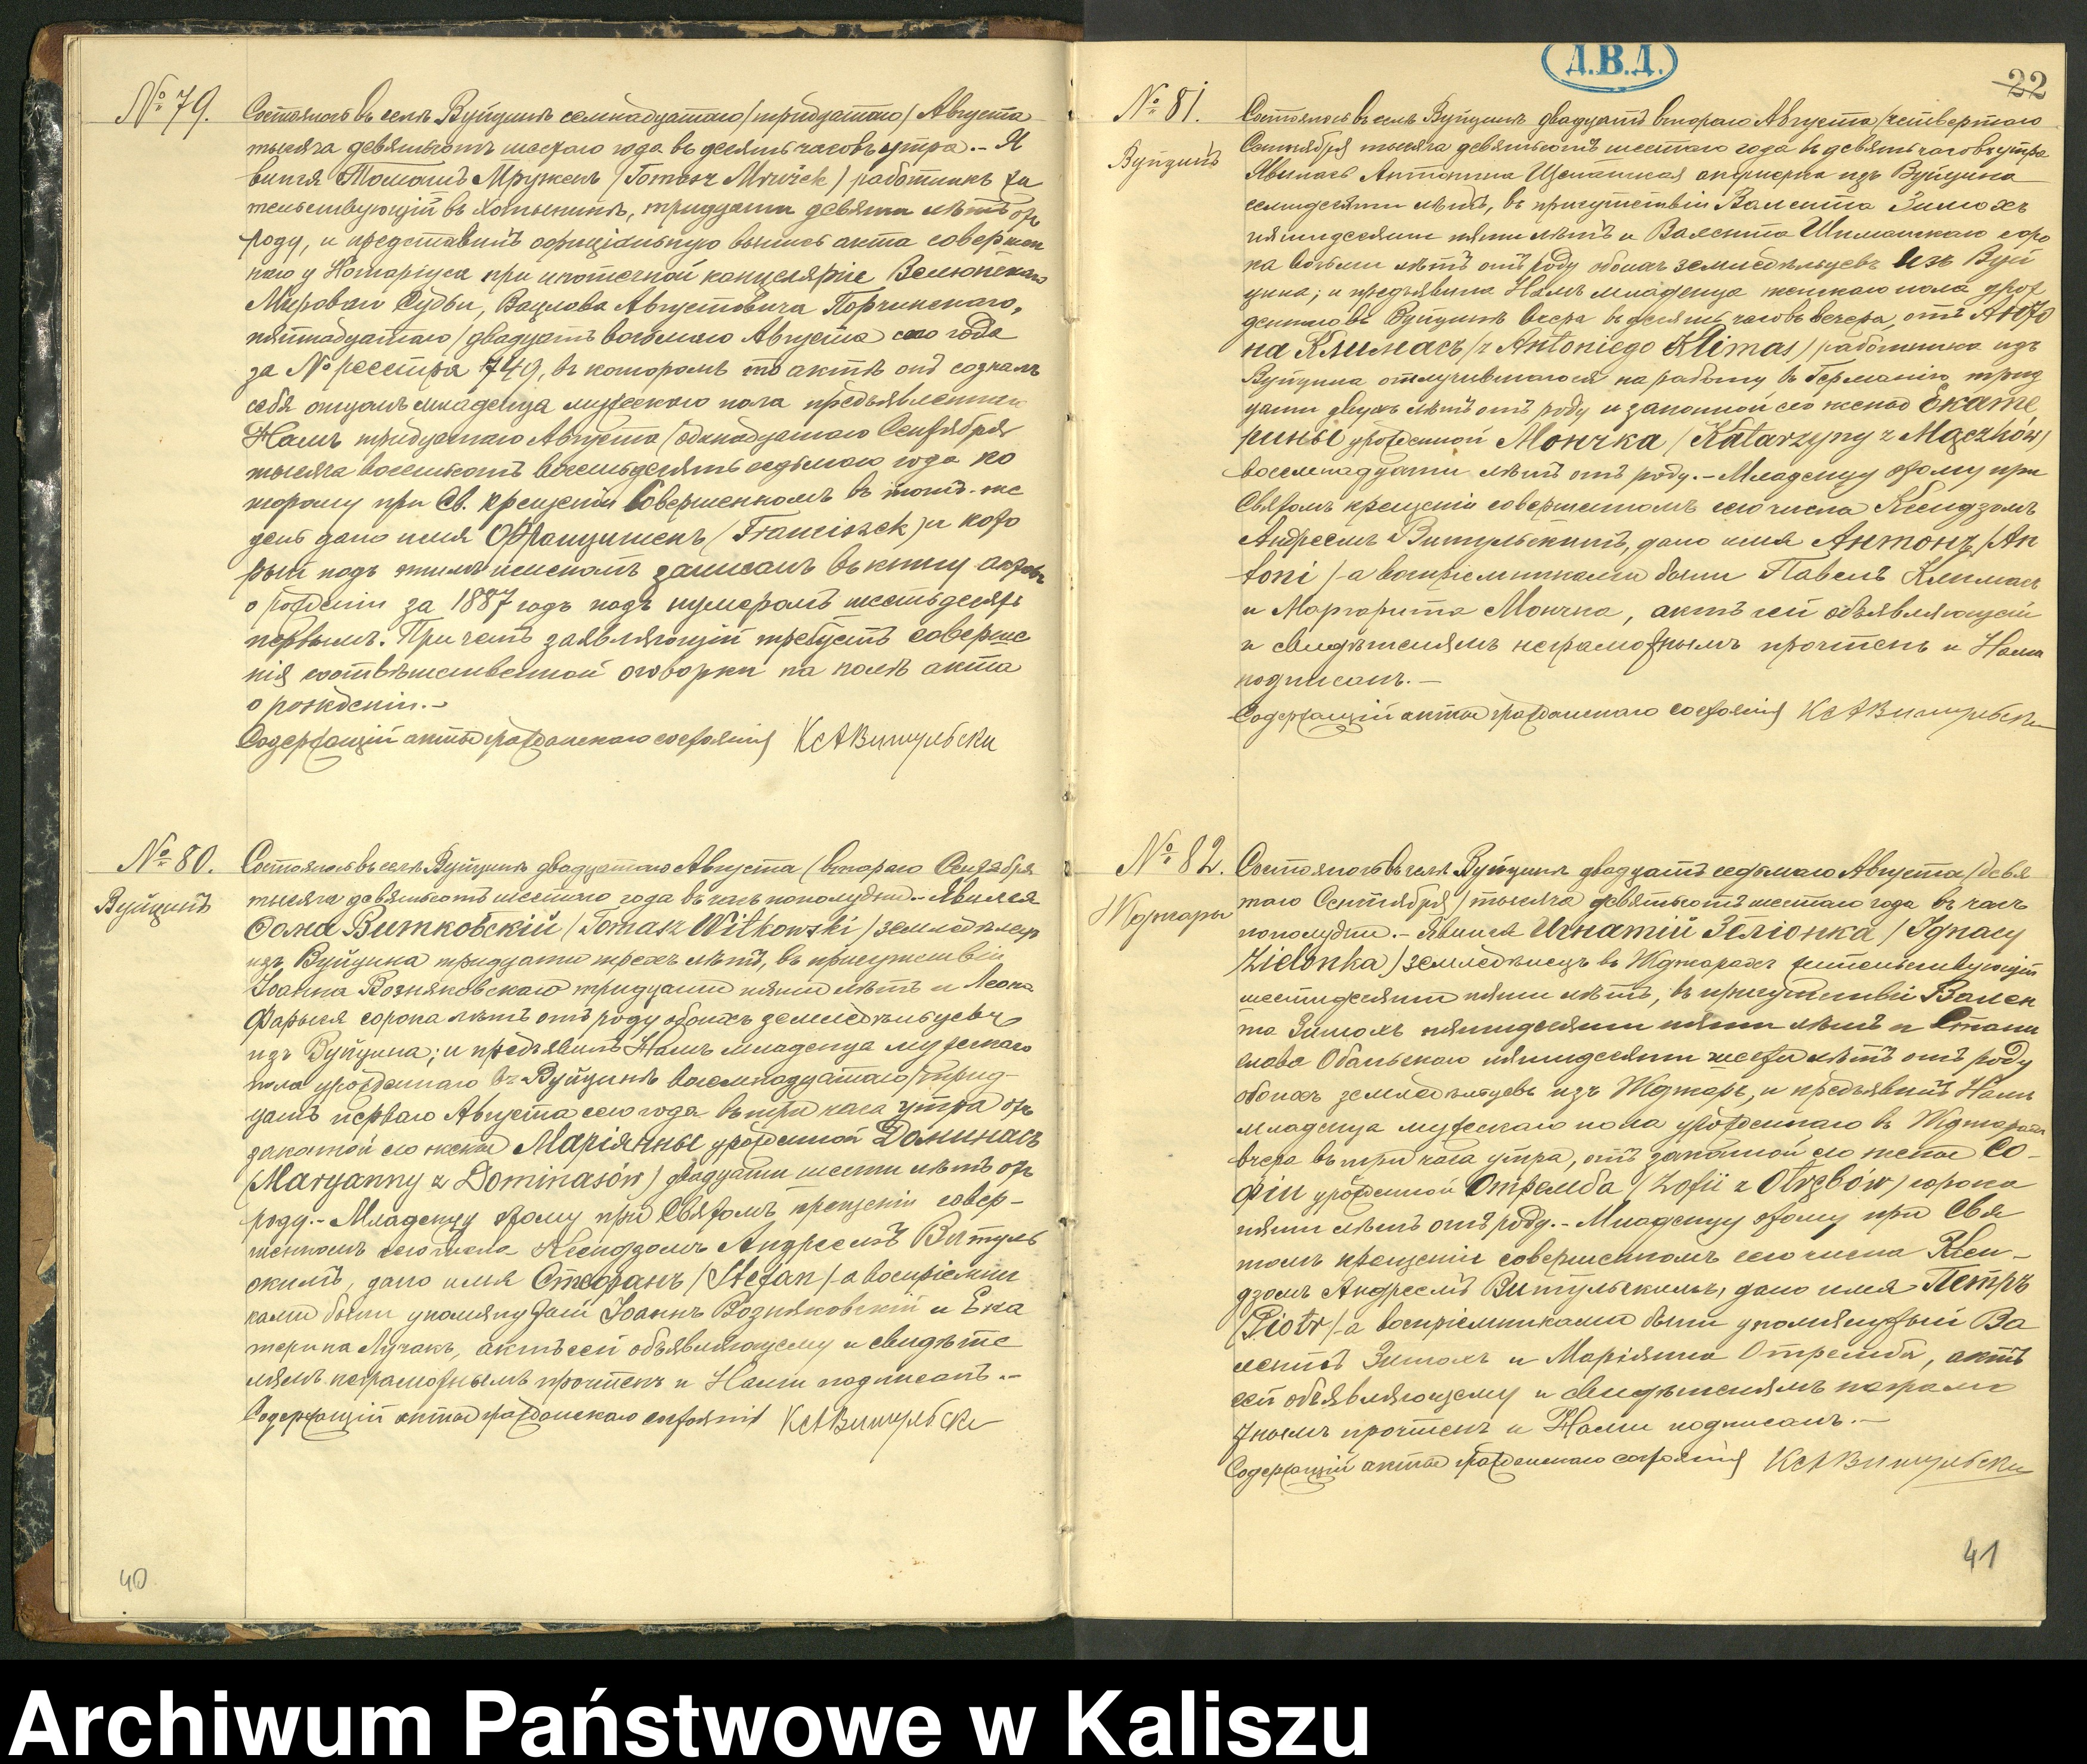 № 79.
Состоялось въ селѣ Вуйцинѣ семнадцатаго /тридцатаго/ Августа
тысяча девятьсотъ шестаго года въ десять часовъ утра.- Я
вился Томашъ Мружекъ /Tomasz Mrużek/ работникъ жи
тельствующій въ Хотынинѣ, тридцати девяти лѣтъ отъ
роду, и представилъ оффиціальную выпись акта совершен
наго у Нотаріуса при ипотечной канцеляріи Велюнскаго
Мироваго Судьи, Вацлова Августовича Порчинскаго,
пятнадцатаго /двадцать восьмаго Августа сего года
за № реестра 749, въ которомъ то актѣ онъ созналъ
себя отцомъ младенца мужескаго пола предъявленнаго
Намъ тридцатаго Августа /одинадцатаго Сентября
тысяча восемьсотъ восемьдесятъ седьмаго года ко
торому при Св. крещеніи совершенномъ въ тотъ-же
день дано имя Францишекъ /Franciszek/ и кото
рый подъ тѣмъ именемъ записанъ въ книгу актовъ
о рожденіи за 1887 годъ подъ нумеромъ шестьдесятъ
первымъ. Причемъ заявляющій требуетъ соверше
нія соотвѣтственной оговорки на полѣ акта
о рожденіи.-
Содержащій акты гражданскаго состоянія КсАВитульски
№ 80.
Вуйцинъ
Состоялось въ селѣ Вуйцинѣ двадцатаго Августа /втораго Сентября
тысяча девятьсотъ шестаго года въ часъ пополудни.- Явился
Ѳома Витковскій /Tomasz Witkowski/ земледѣлецъ
изъ Вуйцина тридцати трехъ лѣтъ, въ присутствіи
Іоанна Возняковскаго тридцати пяти лѣтъ и Леона
Фарыся сорока лѣтъ отъ роду обоихъ земледѣльцевъ
изъ Вуйцина; и предъявилъ Намъ младенца мужескаго
пола урожденнаго въ Вуйцинѣ восемнадцатаго /трид-
цать перваго Августа сего года въ три часа утра отъ
законной его жены Маріянны урожденной Доминасъ
(Maryanny z Dominasów) двадцати шести лѣтъ отъ
роду.- Младенцу этому при Святомъ крещеніи совер-
шенномъ сего числа Ксендзомъ Андреемъ Витуль
скимъ, дано имя Стефанъ /Stefan/-а воспріемни
ками были упомянутый Іоаннъ Возняковскій и Ека
терина Лучакъ, актъ сей объявляющему и свидѣте
лямъ неграмотнымъ прочтенъ и Нами подписанъ.-
Содержащій акты гражданскаго состоянія КсАВитульски
40
Д.В.Д.
22
№ 81.
Вуйцинъ
Состоялось въ селѣ Вуйцинѣ двадцать втораго Августа /четвертаго
Сентября тысяча девятьсотъ шестаго года въ девять часовъ утра
Явилась Антонина Щепанская акушерка изъ Вуйцина
семидесяти лѣтъ, въ присутствіи Валента Зимохъ
пятидесяти пяти лѣтъ и Валента Шиманскаго соро
ка восьми лѣтъ отъ роду обоихъ земледѣльцевъ изъ Вуй
цина; и предъявила Намъ младенца женскаго пола урож
деннаго въ Вуйцинѣ вчера въ десять часовъ вечера, отъ Анто
на Климасъ /z Antoniego Klimas/ работника изъ
Вуйцина отлучившагося на работу въ Германію трид
цати двухъ лѣтъ отъ роду и законной его жены Екате
рины урожденной Мончка /Katarzyny z Mączków/
восемнадцати лѣтъ отъ роду.- Младенцу этому при
Святомъ крещеніи совершенномъ сего числа Ксендзомъ
Андреемъ Витульскимъ, дано имя Антонъ /An
toni/-а воспріемниками были Павелъ Климасъ
и Маргарита Мончка, актъ сей объявляющей
и свидѣтелямъ неграмотнымъ прочтенъ и Нами
подписанъ.-
Содержащій акты гражданскаго состоянія КсАВитульски
№ 82.
Жджары
Состоялось въ селѣ Вуйцинѣ двадцать седьмаго Августа /девя
таго Сентября/ тысяча девятьсотъ шестаго года въ часъ
пополудни.- Явился Игнатій Зелонка /Ignacy
Zielonka/ земледѣлецъ въ Жджарахъ жительствующій
шестидесяти пяти лѣтъ, въ присутствіи Вален
та Зимохъ пятидесяти пяти лѣтъ и Стани
слава Обальскаго пятидесяти шести лѣтъ отъ роду
обоихъ земледѣльцевъ изъ Жджаръ, и предъявилъ Намъ
младенца мужескаго пола урожденнаго въ Жджарахъ
вчера въ три часа утра, отъ законной его жены Со-
фіи урожденной Отремба /Zofii z Otrębów/ сорока
пяти лѣтъ отъ роду.- Младенцу этому при Свя
томъ крещеніи совершенномъ сего числа Ксен-
дзомъ Андреемъ Витульскимъ, дано имя Петръ
/Piotr/-а воспріемниками были упомянутый Ва
лентъ Зимохъ и Маріянна Отремба, актъ
сей объявляющему и свидѣтелямъ неграмо
тнымъ прочтенъ и Нами подписанъ.-
Содержащій акты гражданскаго состоянія КсАВитульски
41
Archiwum Państwowe w Kaliszu